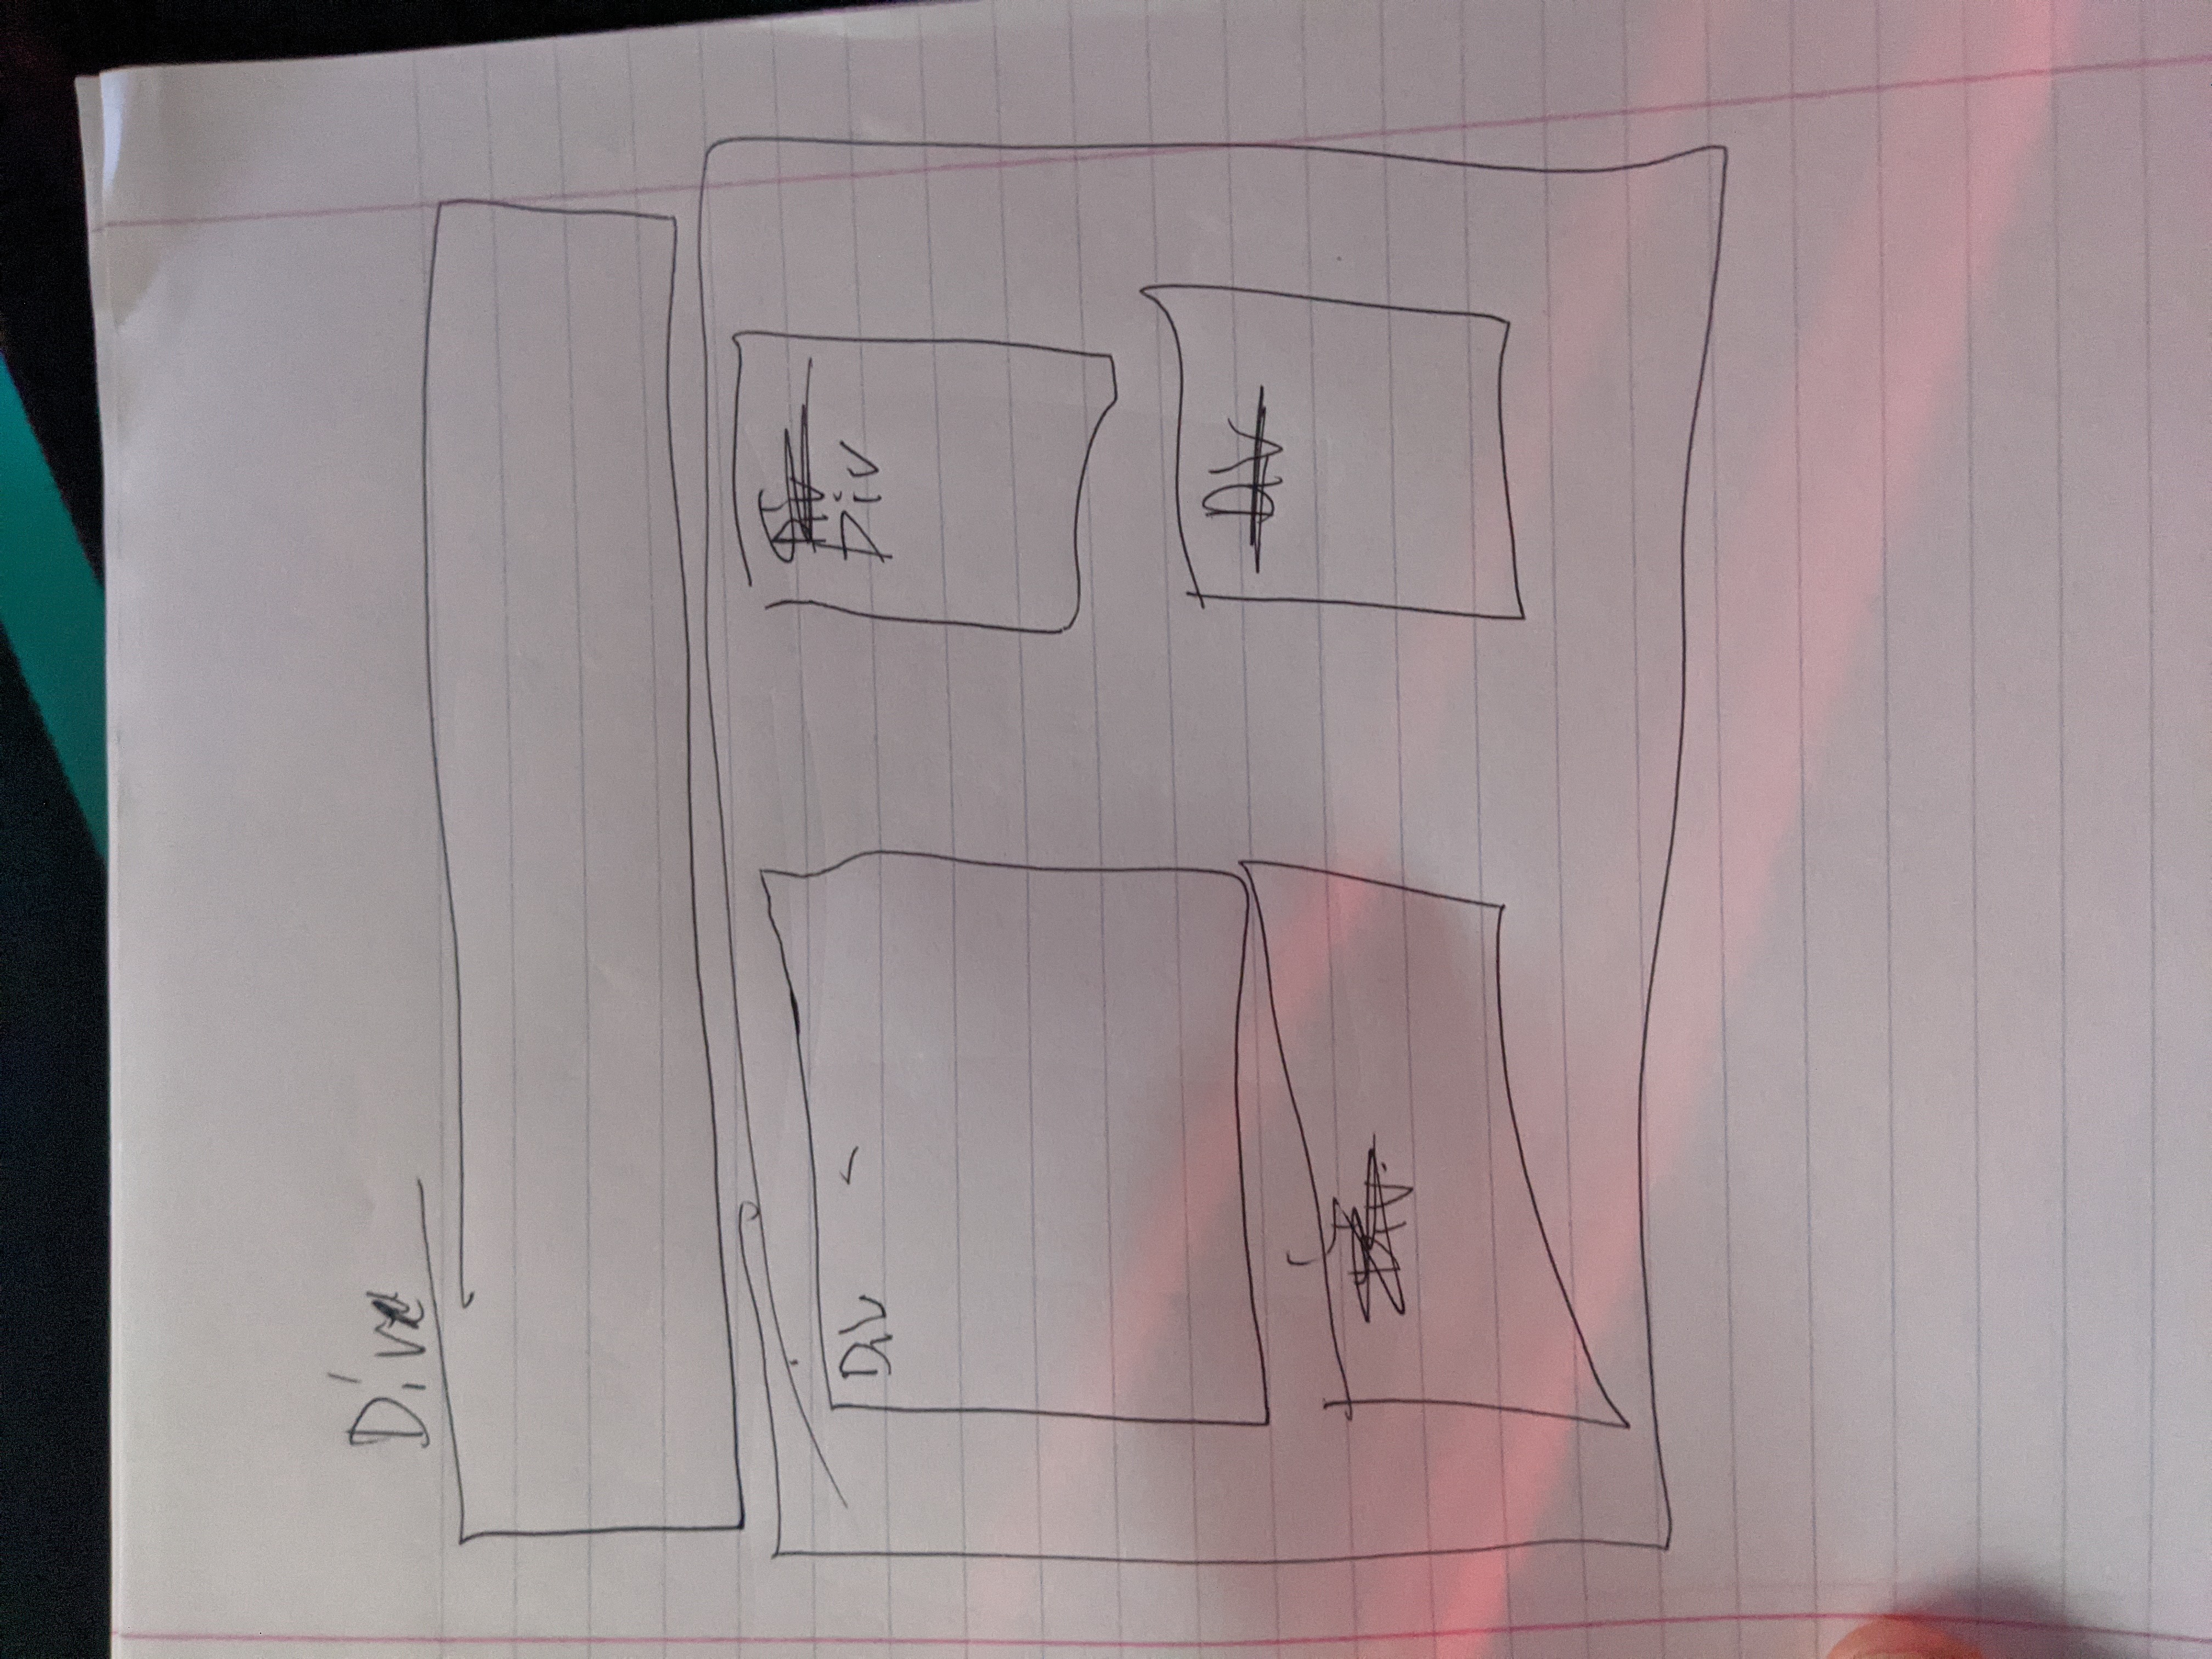 Div
Div
Div
Div
Div
Div